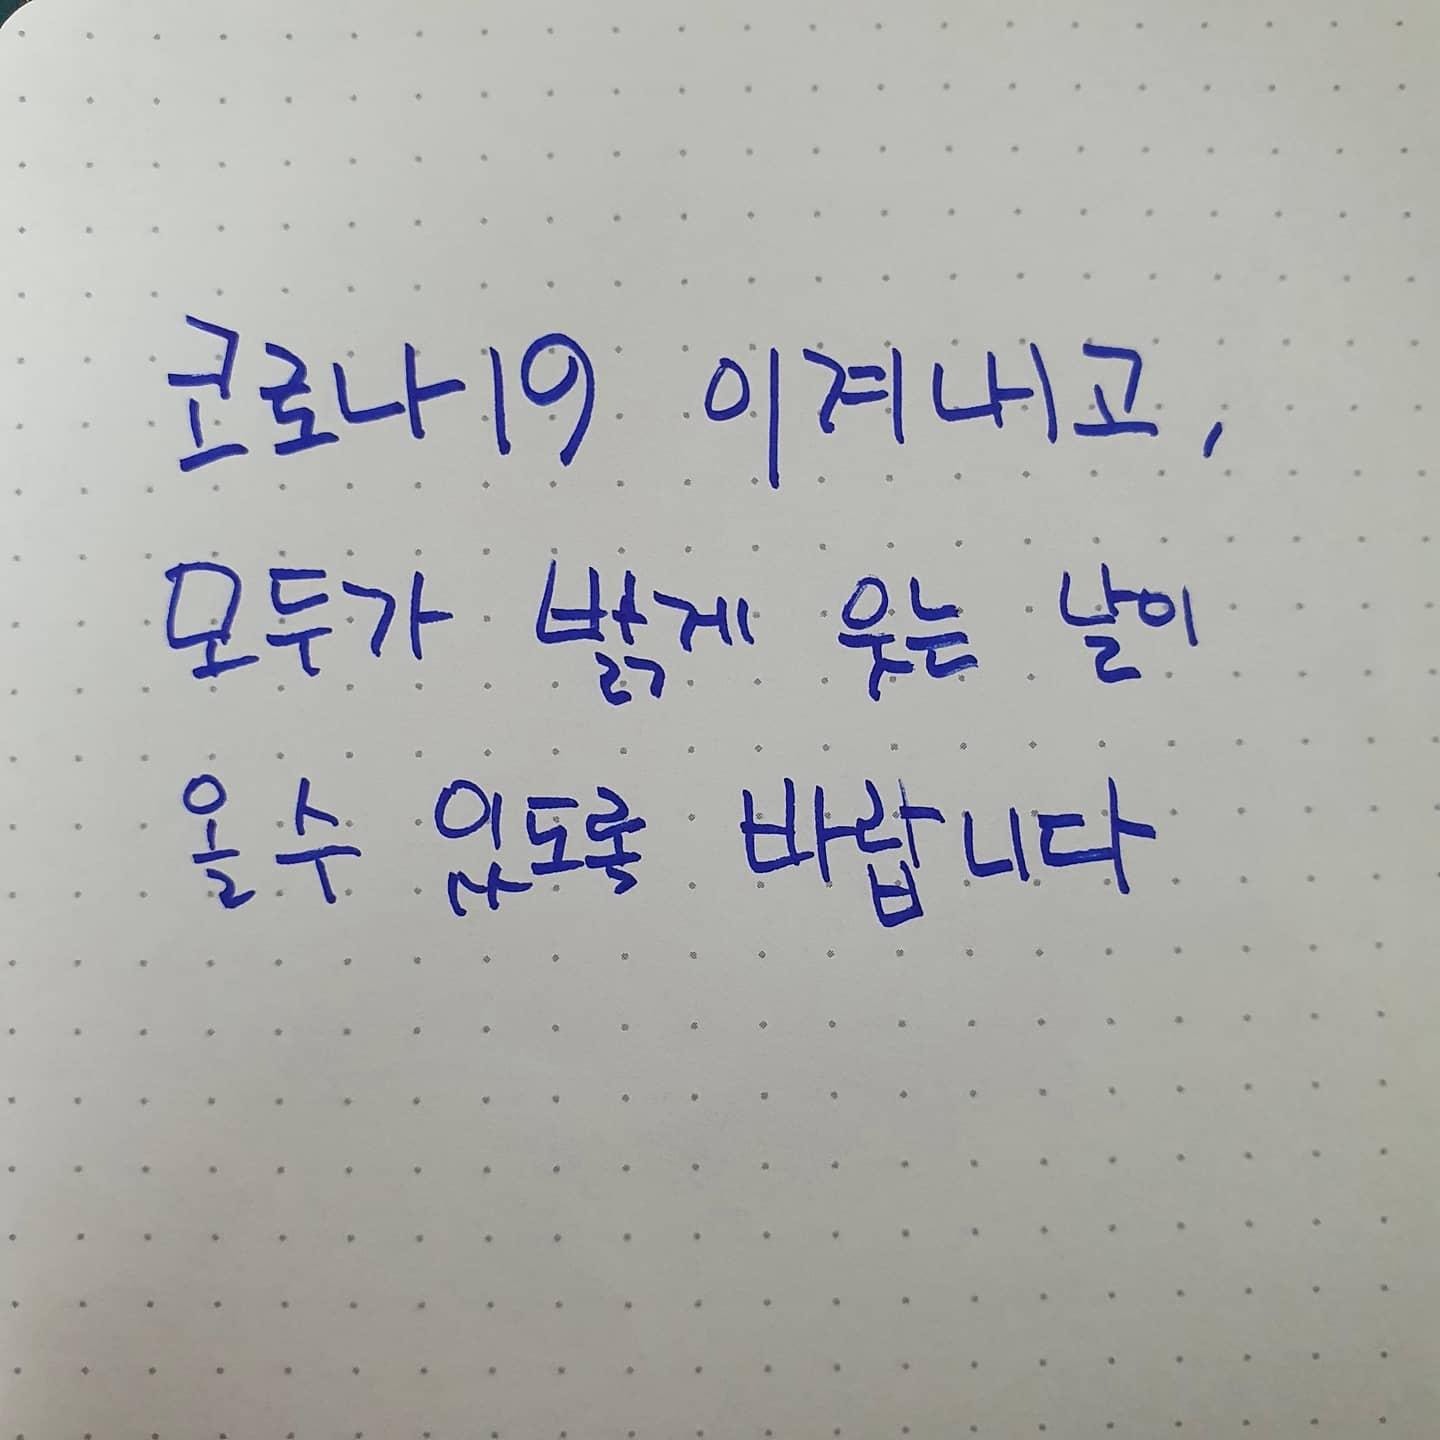 코로나19 이겨내고,
모두가 밝게 웃는 날이
올 수 있도록 바랍니다